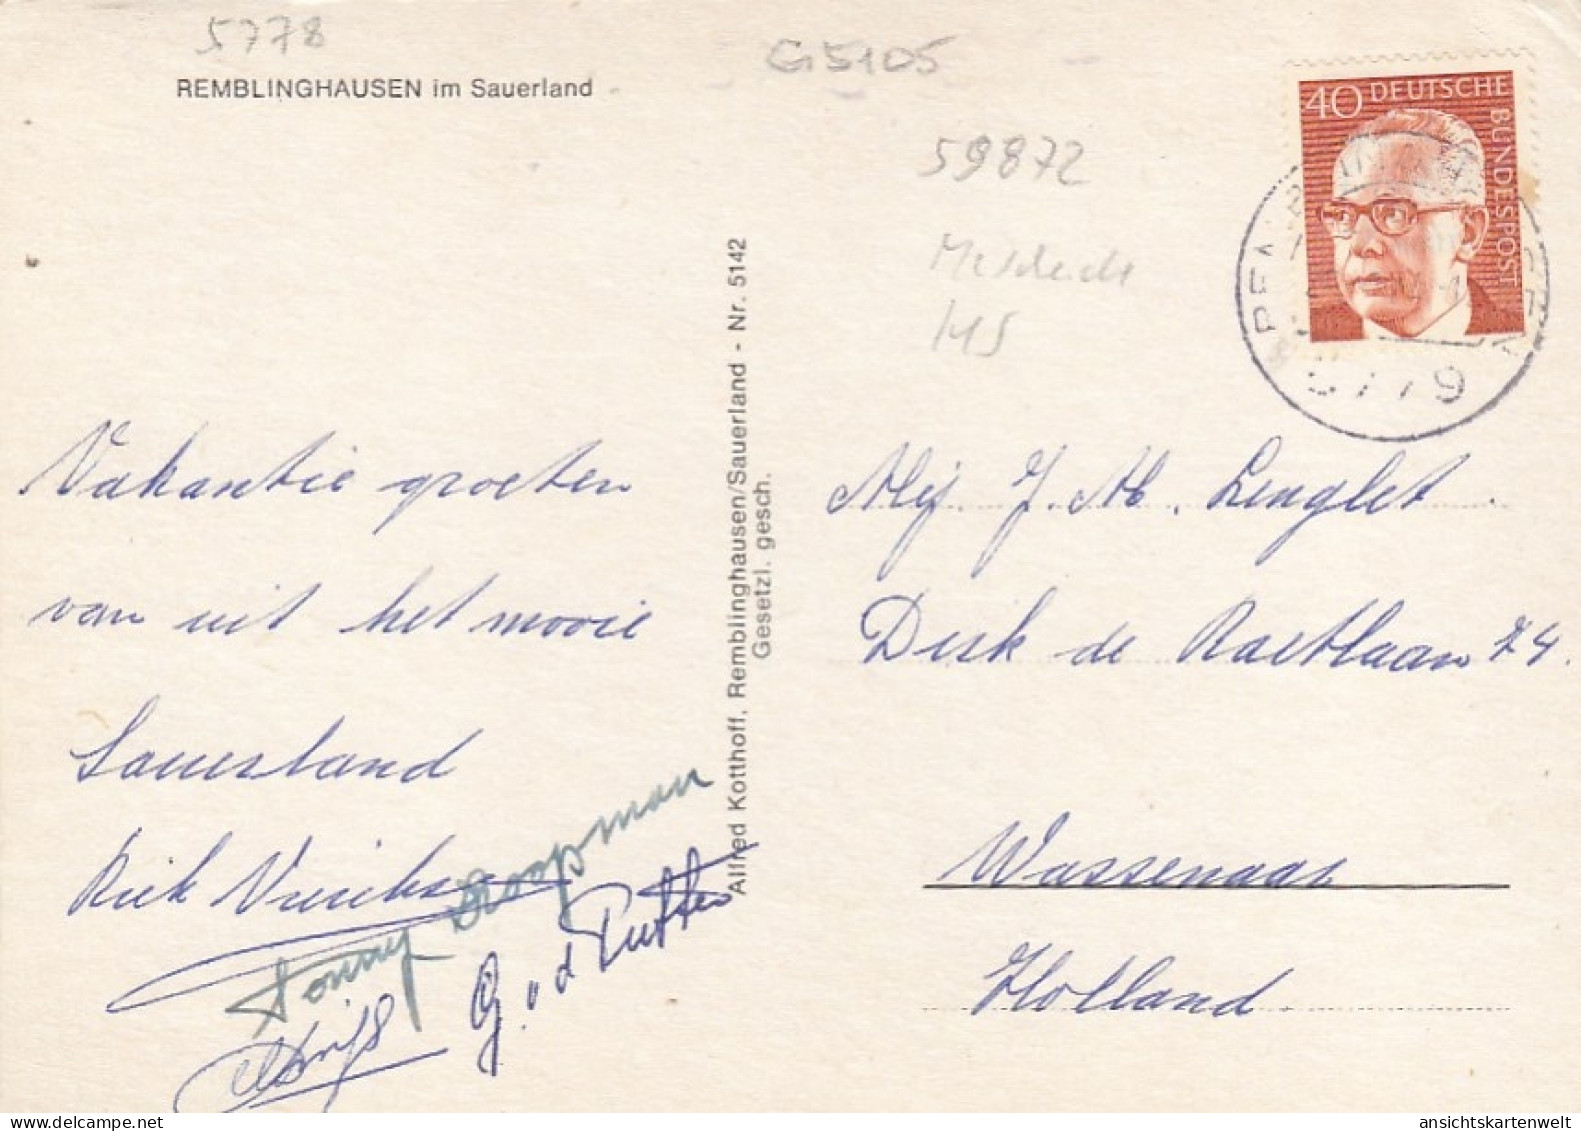 5778
REMBLINGHAUSEN im Sauerland
G5105
59872
40 DEUTSCHE
BUNDESPOST
5779
Vakantie groeten
van uit het mooie
Sauerland
Alfred Kotthoff, Remblinghausen/Sauerland - Nr. 5142
Gesetzl. gesch.
Tonny Koopman
G. v d Putten
Mej. J. M. Lenglet.
Dirk de Raetlaan 74.
Wassenaar
Holland
delcampe.net
ansichtskartenwelt